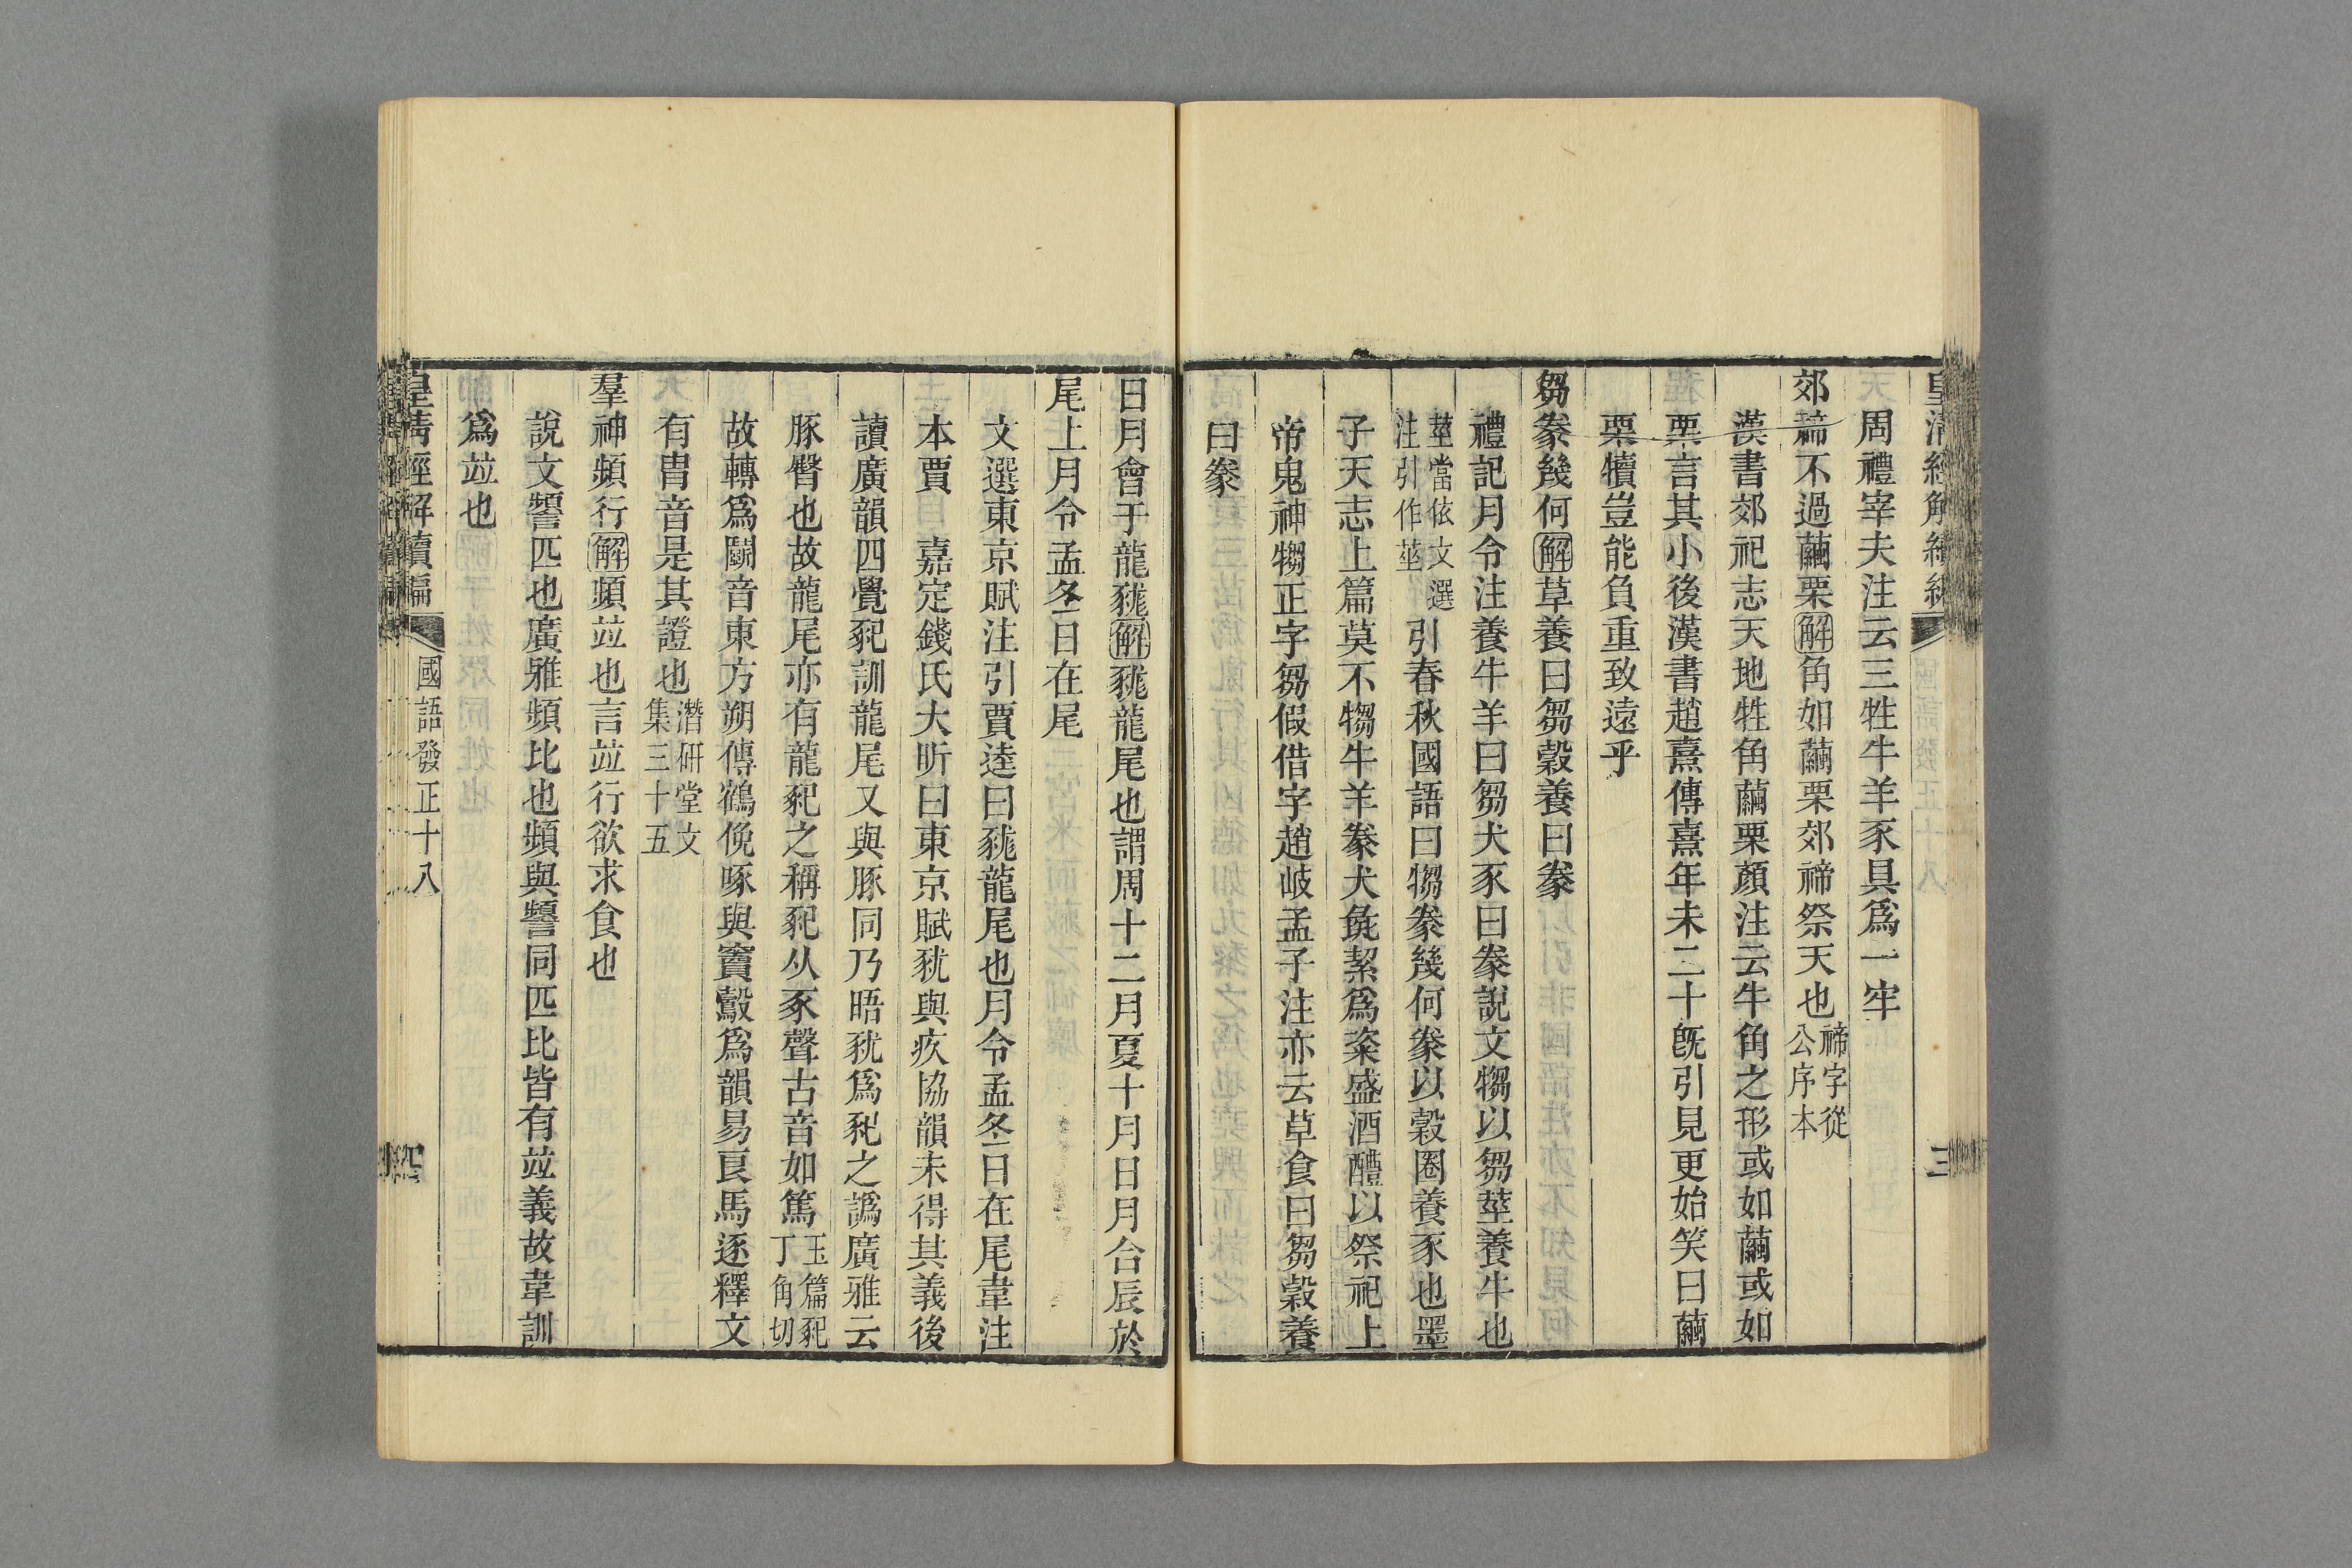 周禮宰夫注云三牲牛羊豕具爲一牢
郊禘不過繭栗解角如繭栗郊禘祭天也禘字從公序本
漢書郊祀志天地牲角繭栗顏注云牛角之形或如繭或如
栗言其小後漢書趙熹傳熹年未二十旣引見更始笑曰繭
栗犢豈能負重致遠乎
芻豢幾何解草養曰芻穀養曰豢
禮記月令注養牛羊曰芻犬豕曰豢說文犓以芻莝養牛也
莝當依文選注引作莖引春秋國語曰犓豢幾何豢以穀圈養豕也墨
子天志上篇莫不犓牛羊豢犬彘絜爲粢盛酒醴以祭祀上
帝鬼神犓正字芻假借字趙岐孟子注亦云草食曰芻穀養
曰豢
日月會于龍𧱓解𧱓龍尾也謂周十二月夏十月日月合辰於
尾上月令孟冬日在尾
文選東京賦注引賈逵曰𧱓龍尾也月令孟冬日在尾韋注
本賈 嘉定錢氏大昕曰東京賦㹸與疚協韻未得其義後
讀廣韻四覺豝訓龍尾又與豚同乃晤㹸爲豝之譌廣雅云
豚臀也故龍尾亦有龍豝之稱豝从豕聲古音如篤玉篇豝丁角切
故轉爲鬭音東方朔傳鶴俛啄與竇鷇爲韻易良馬逐釋文
有冑音是其證也潛研堂文集三十五
羣神頻行解頻竝也言竝行欲求食也
說文顰匹也廣雅頻比也頻與顰同匹比皆有竝義故韋訓
爲竝也
皇淸經解續編 國語發正十八